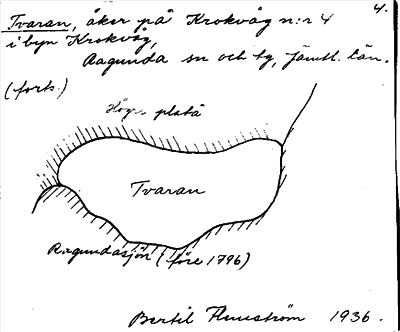 4.
Tvaran, åker på Krokvåg n:r 4
i byn Krokvåg,
Ragunda sn och tg, Jämtl. län.
(forts.)
Höga platå
Tvaran
Ragundasjön (före 1796)
Bertil Flemström 1936.